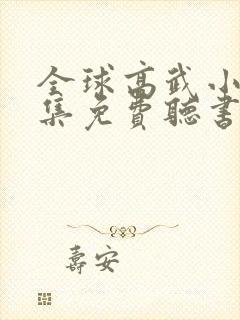 全球高武小
集免費聽書
壽安